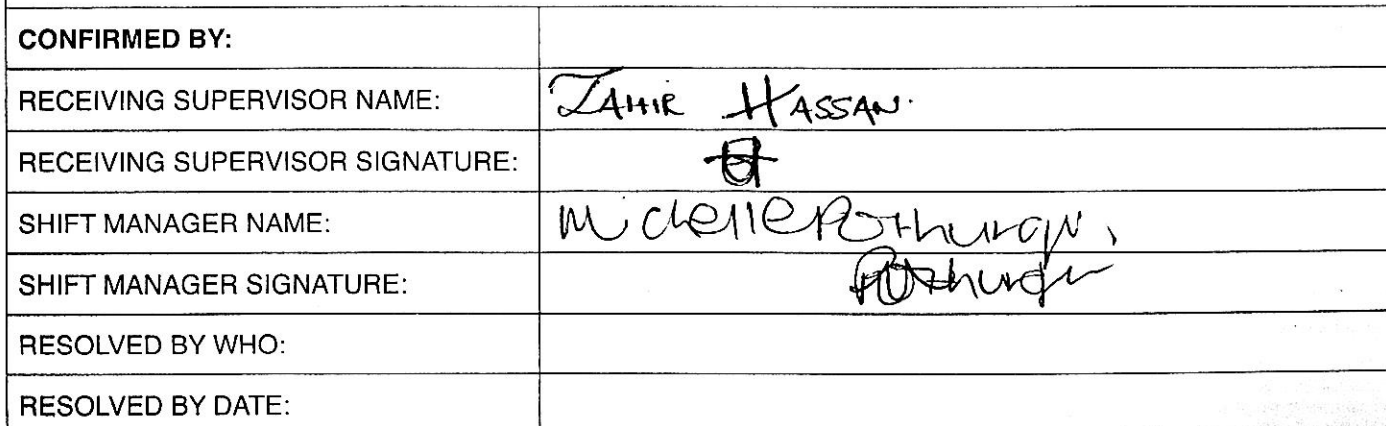 CONFIRMED BY:
RECEIVING SUPERVISOR NAME: ZAHIR HASSAN.
RECEIVING SUPERVISOR SIGNATURE:
SHIFT MANAGER NAME: Michelle
SHIFT MANAGER SIGNATURE:
RESOLVED BY WHO:
RESOLVED BY DATE: